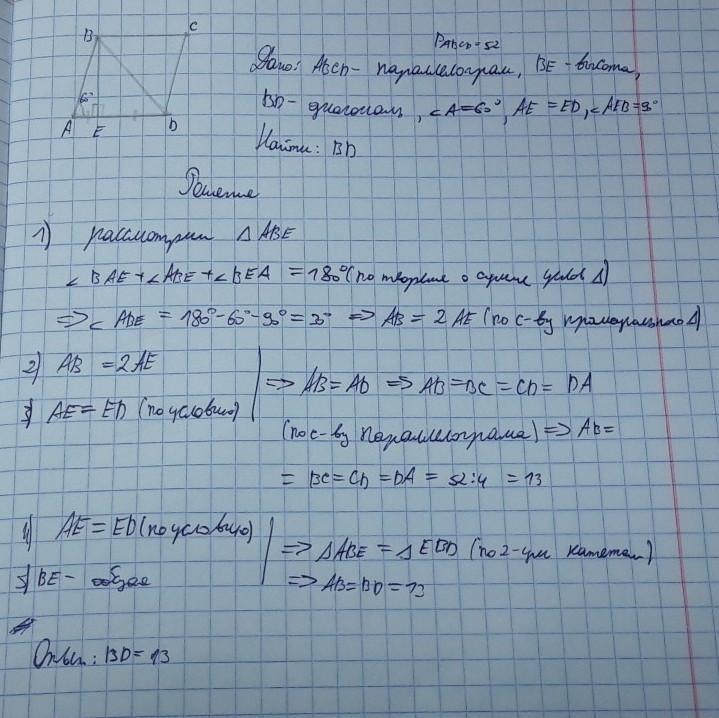 B C
60°
A E D
PABCD = 52
Дано: ABCD - параллелограм, BE - высота,
BD - диагональ, ∠A = 60°, AE = ED, ∠AEB = 90°
Найти: BD
Решение
1) рассмотрим △ ABE
∠ BAE + ∠ABE + ∠BEA = 180° (по теореме о сумме углов △)
=> ∠ ABE = 180° - 60° - 90° = 30° => AB = 2 AE (по с-ву прямоугольного △)
2) AB = 2AE
3) AE = ED (по условию)
=> AB = AD => AB = BC = CD = DA
(по с-ву параллелограма) => AB =
= BC = CD = DA = 52:4 = 13
4) AE = ED (по условию)
5) BE - общая
=> △ABE = △ EBD (по 2-ум катетам)
=> AB = BD = 13
Ответ: BD = 13